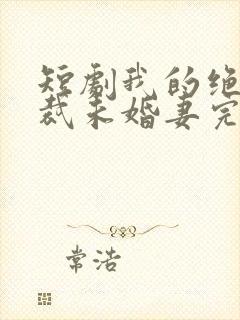 短劇我的绝
裁未婚妻完
常浩